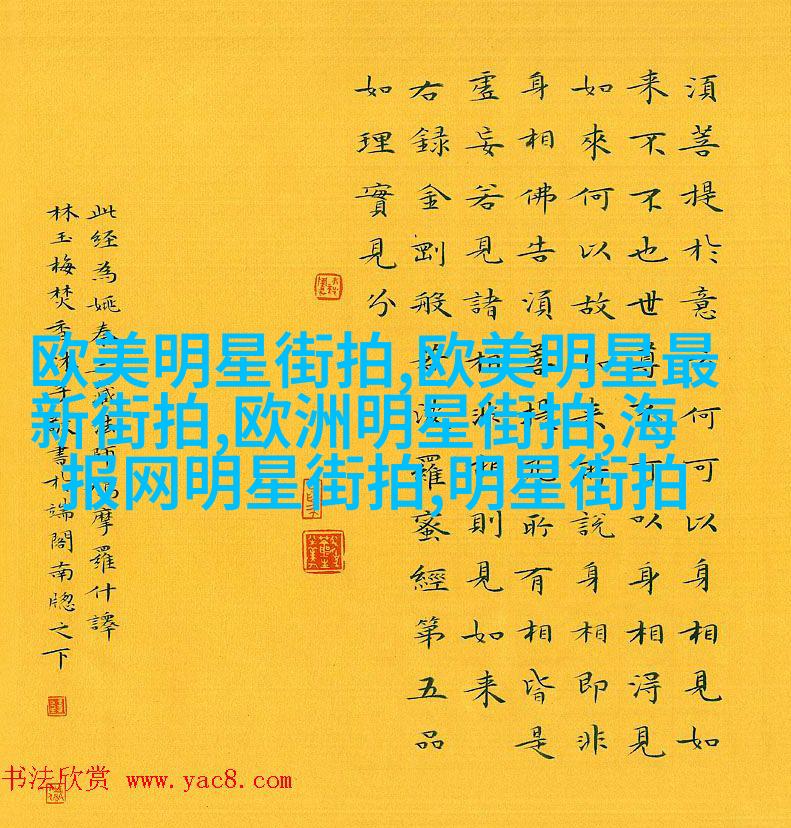 須菩提於意云何可以身相見如
来不不也世尊不可以身相得見
如來何以故如来所說身相即非
身相佛告須菩提凡所有相皆是
虛妄若見諸相非相則見如来
右録金剛般若波羅蜜經第五品
如理實見分
此経為姚秦三藏法師鳩摩羅什譯
林玉梅焚香沐手敬書扵端閣南牕之下
欧美明星街拍,欧美明星最
新街拍,欧洲明星街拍,海
报网明星街拍,明星街拍
书法欣赏 www.yac8.com